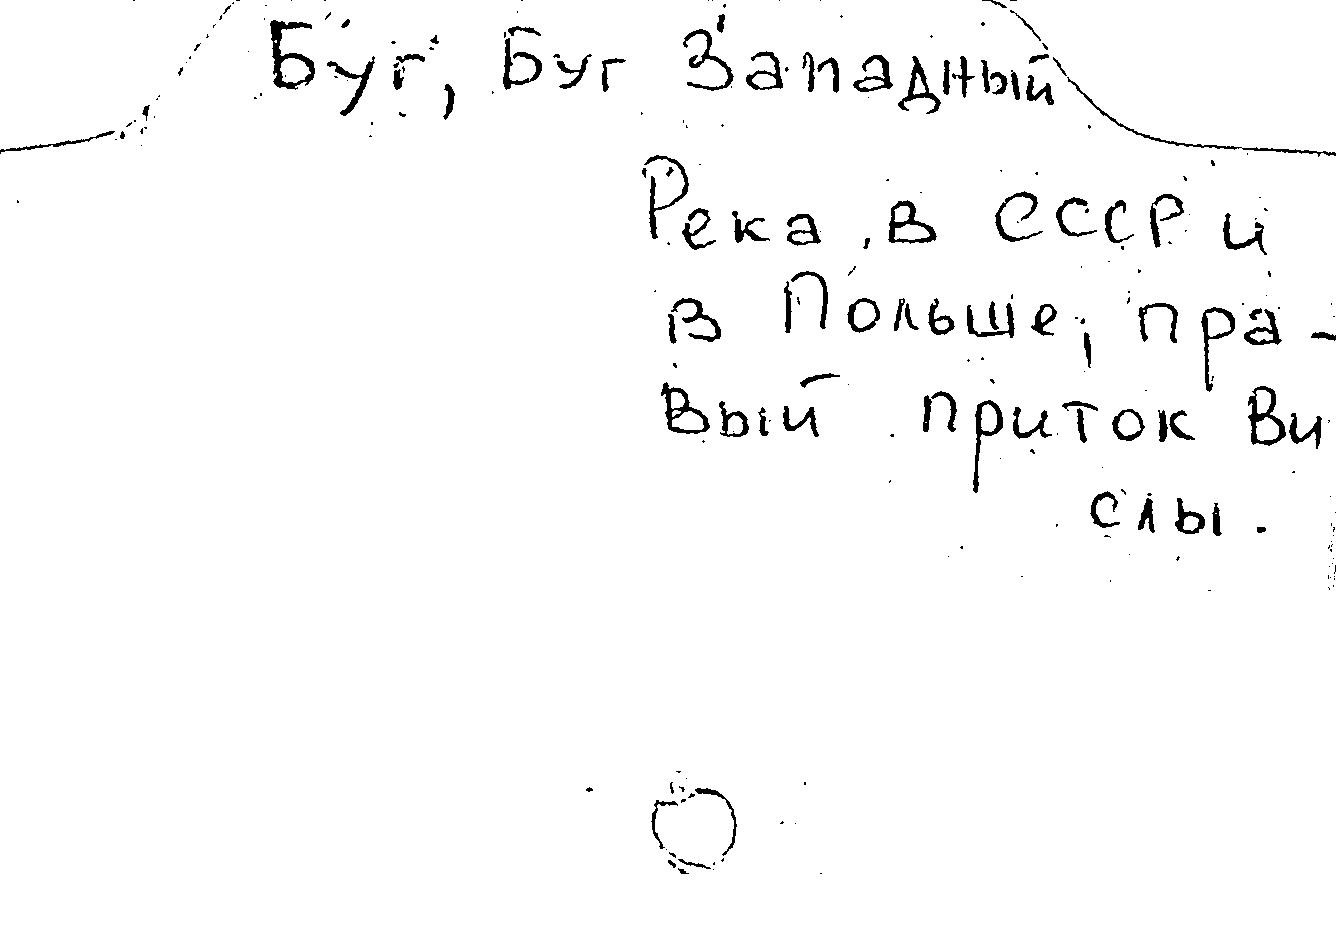 Буг, Буг Западный
Река в СССР и
в Польше, пра-
вый приток Ви
слы.